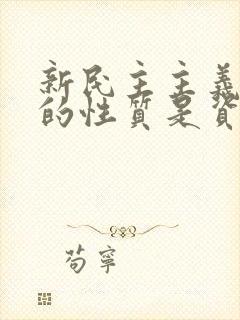 新民主主義
的性質是資
苟寧